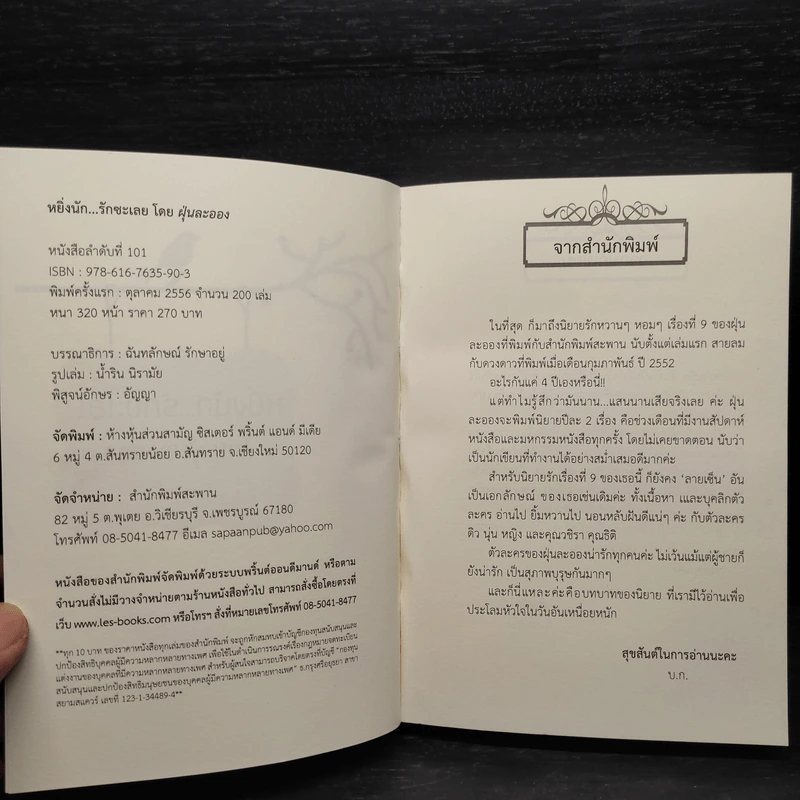 หยิ่งนัก...รักซะเลย โดย ฝุ่นละออง
หนังสือลำดับที่ 101
ISBN : 978-616-7635-90-3
พิมพ์ครั้งแรก : ตุลาคม 2556 จำนวน 200 เล่ม
หนา 320 หน้า ราคา 270 บาท
บรรณาธิการ : ฉันทลักษณ์ รักษาอยู่
รูปเล่ม : น้ำริน นิรามัย
พิสูจน์อักษร : อัญญา
จัดพิมพ์ : ห้างหุ้นส่วนสามัญ ซิสเตอร์ พริ้นต์ แอนด์ มีเดีย
6 หมู่ 4 ต.สันทรายน้อย อ.สันทราย จ.เชียงใหม่ 50120
จัดจำหน่าย : สำนักพิมพ์สะพาน
82 หมู่ 5 ต.พุเตย อ.วิเชียรบุรี จ.เพชรบูรณ์ 67180
โทรศัพท์ 08-5041-8477 อีเมล sapaanpub@yahoo.com
หนังสือของสำนักพิมพ์จัดพิมพ์ด้วยระบบพริ้นต์ออนดีมานด์ หรือตาม
จำนวนสั่งไม่มีวางจำหน่ายตามร้านหนังสือทั่วไป สามารถสั่งซื้อโดยตรงที่
เว็บ www.les-books.com หรือโทรฯ สั่งที่หมายเลขโทรศัพท์ 08-5041-8477
**ทุก 10 บาท ของราคาหนังสือทุกเล่มของสำนักพิมพ์ จะถูกหักสมทบเข้าบัญชีกองทุนสนับสนุนและ
ปกป้องสิทธิบุคคลผู้มีความหลากหลายทางเพศ เพื่อใช้ในดำเนินการรณรงค์เรื่องกฎหมายจดทะเบียน
แต่งงานของบุคคลที่มีความหลากหลายทางเพศ สำหรับผู้สนใจสามารถบริจาคโดยตรงที่บัญชี "กองทุน
สนับสนุนและปกป้องสิทธิมนุษยชนของบุคคลผู้มีความหลากหลายทางเพศ" ธ.กรุงศรีอยุธยา สาขา
สยามสแควร์ เลขที่ 123-1-34489-4**
จากสำนักพิมพ์
ในที่สุด ก็มาถึงนิยายรักหวานๆ หอมๆ เรื่องที่ 9 ของฝุ่น
ละอองที่พิมพ์กับสำนักพิมพ์สะพาน นับตั้งแต่เล่มแรก สายลม
กับดวงดาวที่พิมพ์เมื่อเดือนกุมภาพันธ์ ปี 2552
อะไรกันแค่ 4 ปีเองหรือนี่!!
แต่ทำไมรู้สึกว่ามันนาน...แสนนานเสียจริงเลย ค่ะ ฝุ่น
ละอองจะพิมพ์นิยายปีละ 2 เรื่อง คือช่วงเดือนที่มีงานสัปดาห์
หนังสือและมหกรรมหนังสือทุกครั้ง โดยไม่เคยขาดตอน นับว่า
เป็นนักเขียนที่ทำงานได้อย่างสม่ำเสมอดีมากค่ะ
สำหรับนิยายรักเรื่องที่ 9 ของเธอนี้ ก็ยังคง 'ลายเซ็น' อัน
เป็นเอกลักษณ์ ของเธอเช่นเดิมค่ะ ทั้งเนื้อหา และบุคลิกตัว
ละคร อ่านไป ยิ้มหวานไป นอนหลับฝันดีแน่ๆ ค่ะ กับตัวละคร
ดิว นุ่น หญิง และคุณวชิรา คุณธิติ
ตัวละครของฝุ่นละอองน่ารักทุกคนค่ะ ไม่เว้นแม้แต่ผู้ชายก็
ยังน่ารัก เป็นสุภาพบุรุษกันมากๆ
และก็นี่แหละค่ะคือบทบาทของนิยาย ที่เรามีไว้อ่านเพื่อ
ประโลมหัวใจในวันอันเหนื่อยหนัก
สุขสันต์ในการอ่านนะคะ
บ.ก.